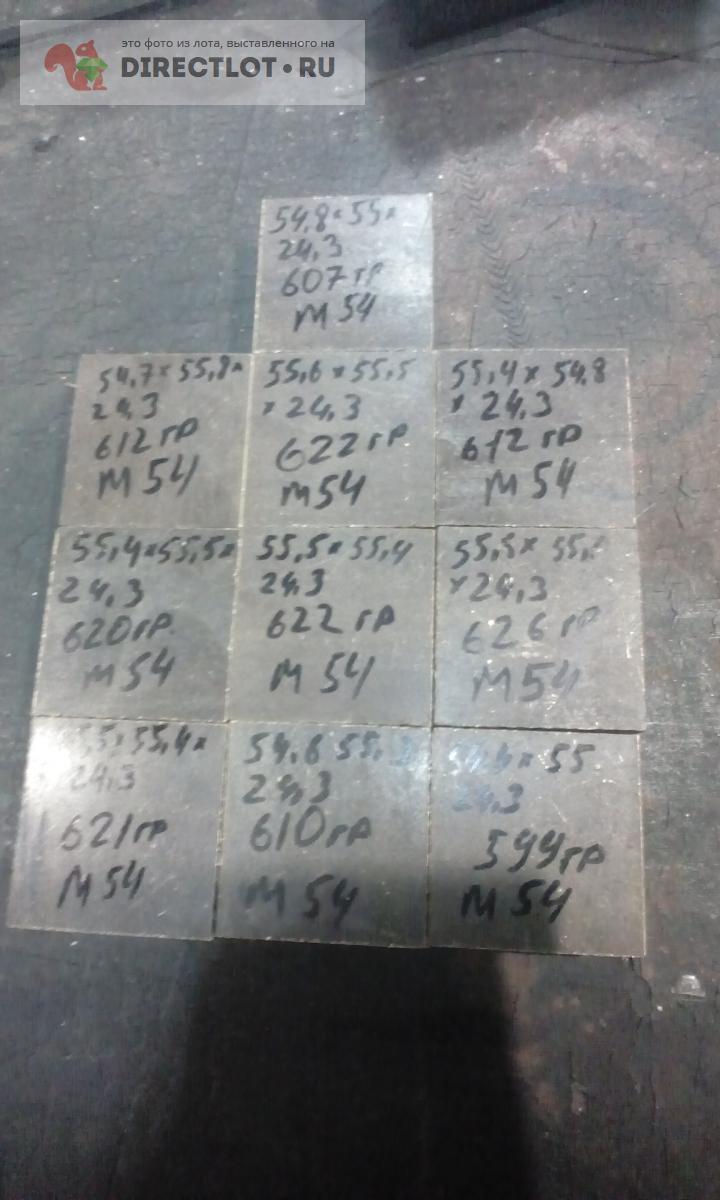 это фото из лота, выставленного на
DIRECTLOT.RU
54,8×55×
24,3
607гр
М54
54,7×55,8×
24,3
612гр
М54
55,6×55,5
×24,3
622гр
М54
55,4×54,8
×24,3
612гр
М54
55,4×55,5×
24,3
620гр
М54
55,5×55,4
24,3
622гр
М54
55,5×
×24,3
626гр
М54
55,4×
24,3
621гр
М54
54,6
24,3
610гр
М54
×55
24,3
599гр
М54